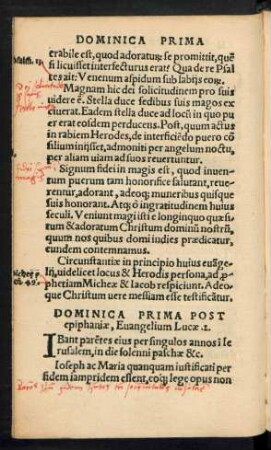 DOMINICA PRIMA
erabile est, quod adoratur⁹ se promittit, quē
si licuisset interfecturus erat? Qua de re Psal
tes ait: Venenum aspidum sub labijs eoꝝ.
Magnam hic dei solicitudinem pro suis
uidere ē. Stella duce sedibus suis magos ex
ciuerat. Eadem stella duce ad locū in quo pu
er erat eosdem perducens. Post, quum actus
in rabiem Herodes, de interficiēdo puero cō
silium inijsset, admoniti per angelum noctu,
per aliam uiam ad suos reuertuntur.
Signum fidei in magis est, quod inuen
tum puerum tam honorifice salutant, reue-
rentur, adorant, adeoq; muneribus quisque
suis honorant. Atq; ô ingratitudinem huius
seculi. Veniunt magi isti e longinquo quæsi-
tum & adoratum Christum dominū nostrū,
quum nos quibus domi indies prædicatur,
eundem contemnamus.
Circunstantiæ in principio huius euāge
lij, uidelicet locus & Herodis persona, ad ꝓ-
phetiam Micheæ & Iacob respiciunt. Adeo-
que Christum uere messiam esse testificātur.
DOMINICA PRIMA POST
epiphaniæ, Euangelium Lucæ .2.
IBant parētes eius per singulos annos ī Ie
rusalem, in die solenni paschæ &c.
Ioseph ac Maria quanquam iustificati per
fidem iampridem essent, eoq; lege opus non